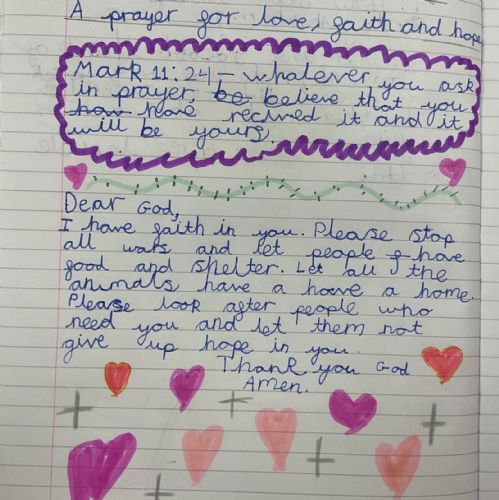 A prayer for love, faith and hope
Mark 11:24 - whatever you ask
in prayer, be believe that you
how have recived it and it
will be yours,
Dear God,
I have faith in you. Please stop
all wars and let people f have
good and shelter. Let all the
animals have a hove a home.
Please look after people who
need you and let them not
give up hope in you.
Thank you God
Amen.